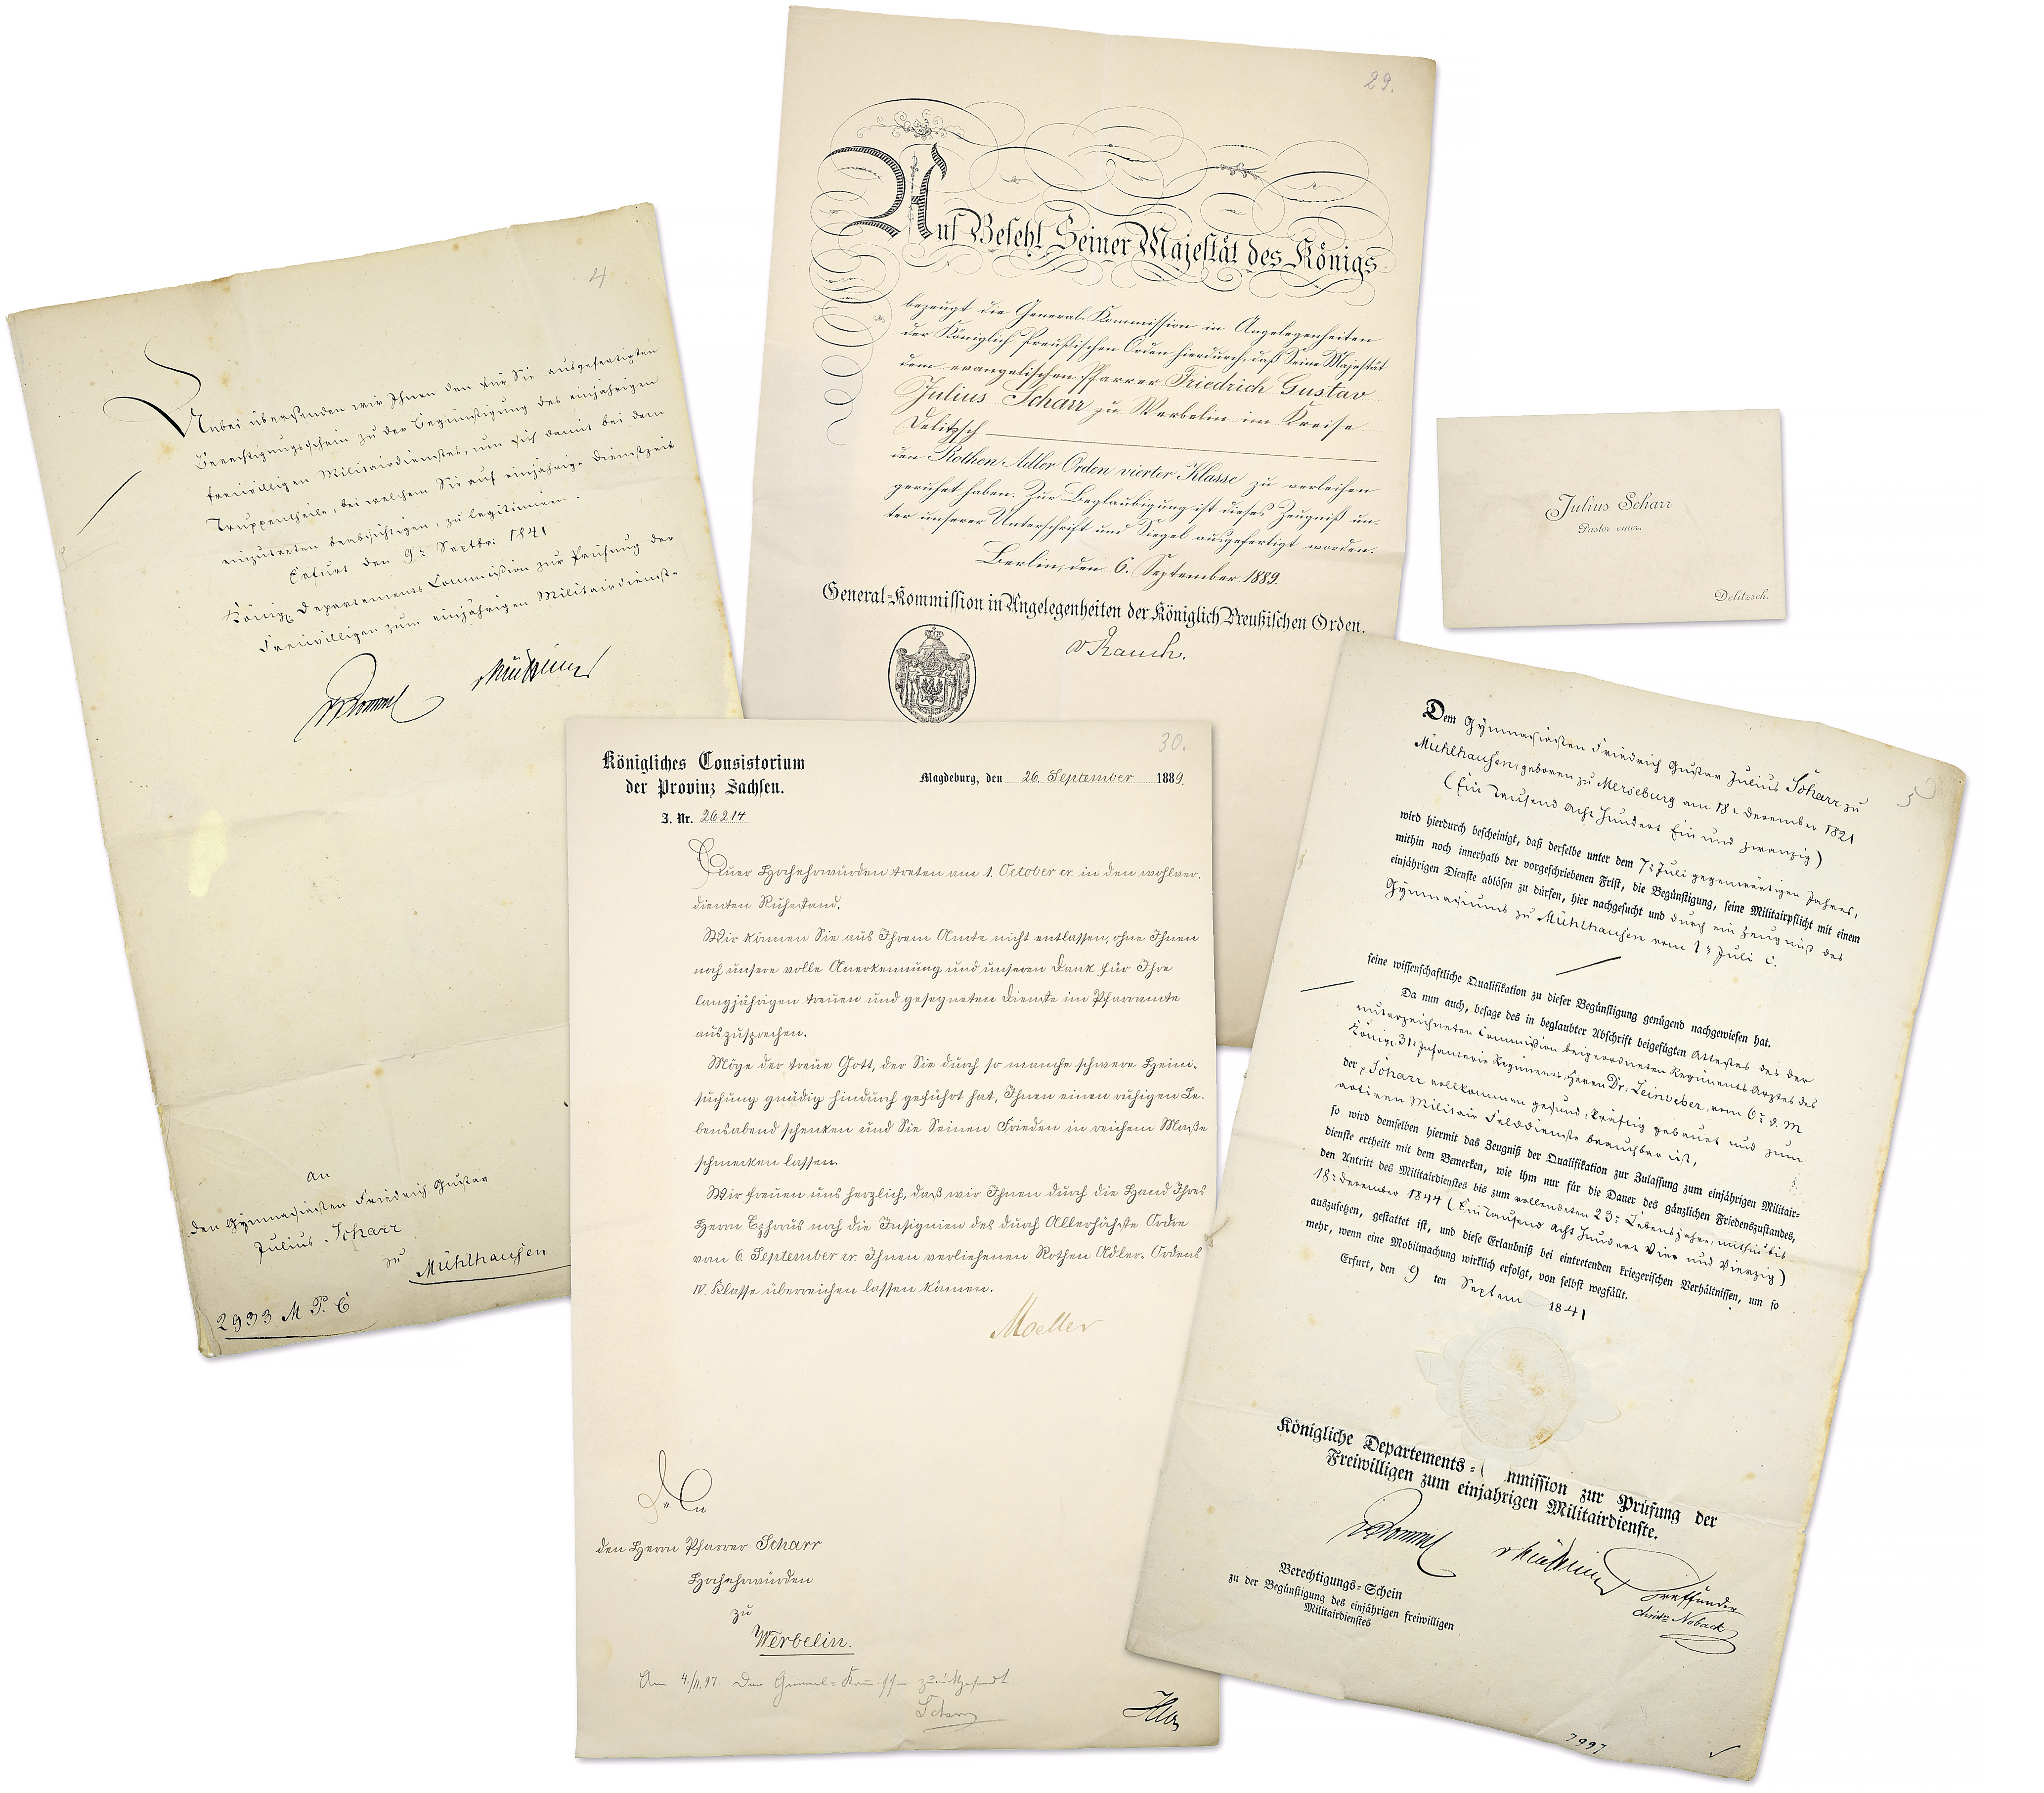 4
Anbei übersenden wir Ihnen den für Sie ausgefertigten
Berechtigungsschein zu der Begünstigung des einjährigen
freiwilligen Militairdienstes, um sich damit bei dem
Truppentheile, bei welchem Sie auf einjährige Dienstzeit
einzutreten beabsichtigen, zu legitimiren.
Erfurt den 9t Septbr: 1841
Königl. Departements Commission zur Prüfung der
Freiwilligen zum einjährigen Militairdienst.
An
den Gymnasiasten Friedrich Gustav
Julius Scharr
zu
Mühlhausen
2933 M. P. C
29.
Auf Befehl Seiner Majestät des Königs
bezeugt die General-Kommission in Angelegenheiten
der Königlich Preußischen Orden hierdurch, daß Seine Majestät
dem evangelischen Pfarrer Friedrich Gustav
Julius Scharr zu Werbelin im Kreise
Delitzsch
den Rothen Adler Orden vierter Klasse zu verleihen
geruhet haben. Zur Beglaubigung ist dieses Zeugniß un-
ter unserer Unterschrift und Siegel ausgefertigt worden.
Berlin, den 6. September 1889.
General-Kommission in Angelegenheiten der Königlich Preußischen Orden.
v Rauch.
Julius Scharr
Pastor emer.
Delitzsch.
30.
Königliches Consistorium
der Provinz Sachsen.
Magdeburg, den 26. September 1889.
J. Nr. 26214
Euer Hochehrwürden treten am 1. October cr. in den wohlver-
dienten Ruhestand.
Wir können Sie aus Ihrem Amte nicht entlassen, ohne Ihnen
noch unsere volle Anerkennung und unseren Dank für Ihre
langjährigen treuen und gesegneten Dienste im Pfarramte
auszusprechen.
Möge der treue Gott, der Sie durch so manche schwere Heim-
suchung gnädig hindurch geführt hat, Ihnen einen ruhigen Le-
bensabend schenken und Sie Seinen Frieden in reichem Maße
schmecken lassen.
Wir freuen uns herzlich, daß wir Ihnen durch die Hand Ihres
Herrn Ephorus noch die Insignien des durch Allerhöchste Ordre
vom 6. September cr. Ihnen verliehenen Rothen Adler-Ordens
IV. Klasse überreichen lassen können.
Moeller
An
den Herrn Pfarrer Scharr
Hochehrwürden
zu
Werbelin.
Am 4./11.97. Der General-Kommission zurückgesandt
Scharr
5
Dem Gymnasiasten Friedrich Gustav Julius Scharr zu
Mühlhausen, geboren zu Merseburg am 18t December 1821
(Ein Tausend Acht Hundert Ein und zwanzig)
wird hierdurch bescheinigt, daß derselbe unter dem 7t Juli gegenwärtigen Jahres,
mithin noch innerhalb der vorgeschriebenen Frist, die Begünstigung, seine Militairpflicht mit einem
einjährigen Dienste ablösen zu dürfen, hier nachgesucht und durch ein Zeugniß des
Gymnasiums zu Mühlhausen vom 1t Juli c.
seine wissenschaftliche Qualifikation zu dieser Begünstigung genügend nachgewiesen hat.
Da nun auch, besage des in beglaubter Abschrift beigefügten Attestes des der
unterzeichneten Commission beigeordneten Regiments Arztes des
Königl. 31t Infanterie Regiments, Herrn Dr: Leinveber, vom 6t d. M
der p. Scharr vollkommen gesund, kräftig gebauet und zum
activen Militair Felddienste brauchbar ist,
so wird demselben hiermit das Zeugniß der Qualifikation zur Zulassung zum einjährigen Militair-
dienste ertheilt mit dem Bemerken, wie ihm nur für die Dauer des gänzlichen Friedenszustandes,
den Antritt des Militairdienstes bis zum vollendeten 23t Lebensjahre, mithin bis
18t December 1844 (Ein Tausend Acht Hundert Vier und Vierzig)
auszusetzen, gestattet ist, und diese Erlaubniß bei eintretenden kriegerischen Verhältnissen, um so
mehr, wenn eine Mobilmachung wirklich erfolgt, von selbst wegfällt.
Erfurt, den 9 ten Septem 1841
Königliche Departements-C mmission zur Prüfung der
Freiwilligen zum einjahrigen Militairdienste.
Berechtigungs-Schein
zu der Begünstigung des einjährigen freiwilligen
Militairdienstes
Treffunder
Noback
7997